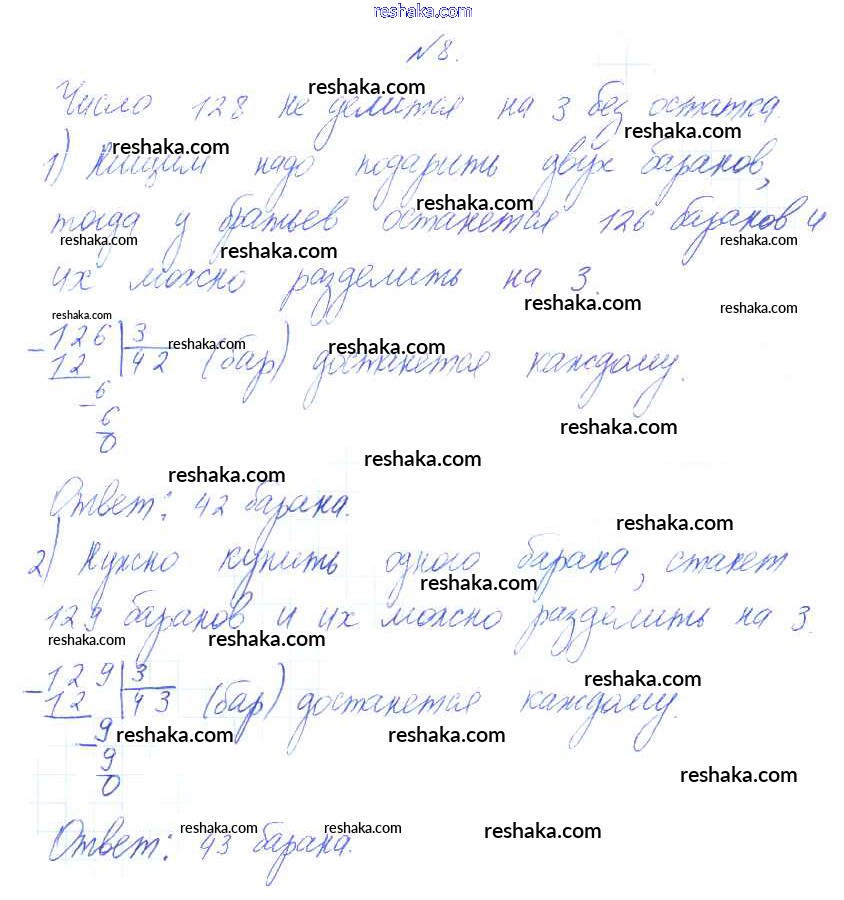 reshaka.com
№8.
reshaka.com
Число 128 не делится на 3 без остатка.
reshaka.com reshaka.com
1) Нищим надо подарить двух баранов,
reshaka.com
тогда у братьев останется 126 баранов и
reshaka.com reshaka.com reshaka.com
их можно разделить на 3.
reshaka.com reshaka.com
reshaka.com
- 126 | 3
12 | 42 (бар) достанется каждому.
reshaka.com reshaka.com
- 6
6
0
reshaka.com
reshaka.com
reshaka.com
Ответ: 42 барана.
reshaka.com
2) Нужно купить одного барана, станет
reshaka.com
129 баранов и их можно разделить на 3.
reshaka.com reshaka.com
- 129 | 3
12 | 43 (бар) достанется каждому.
reshaka.com
- 9
9
0
reshaka.com reshaka.com
reshaka.com
reshaka.com reshaka.com reshaka.com
Ответ: 43 барана.